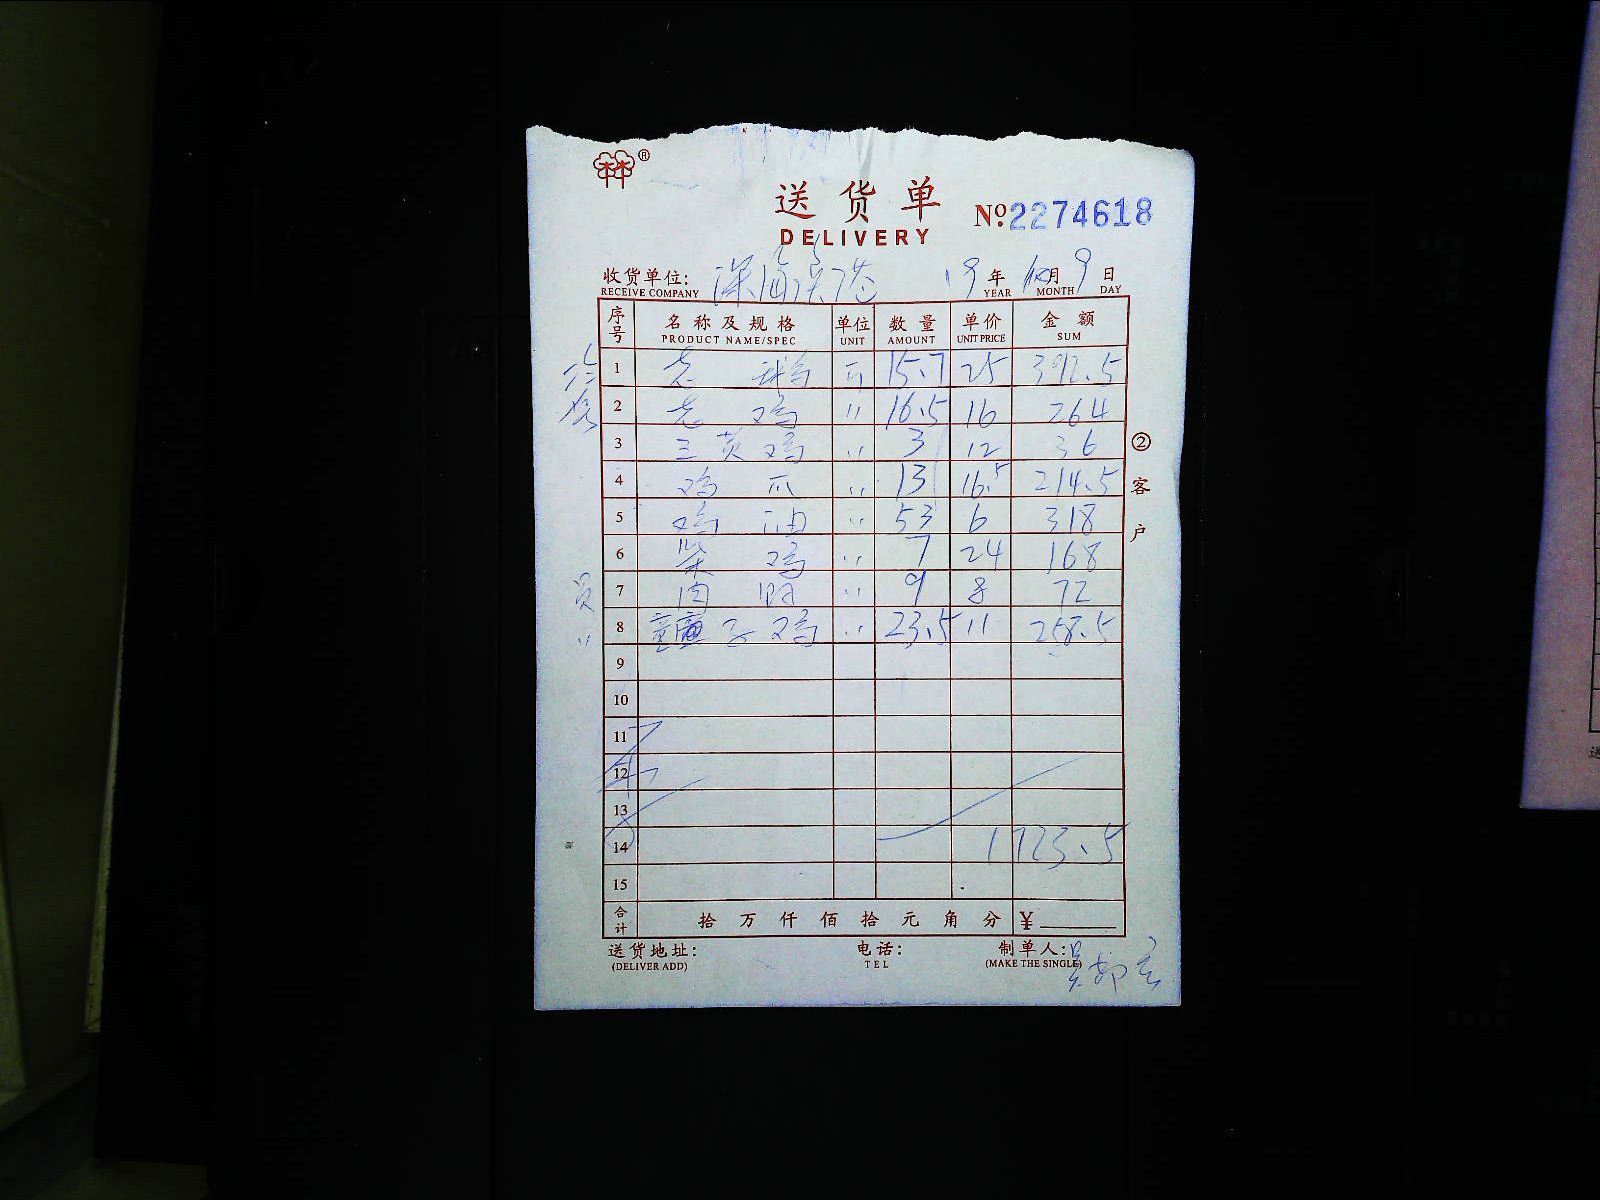 林®
送货单
DELIVERY
№2274618
收货单位: 19年 10月 9日
RECEIVE COMPANY YEAR MONTH DAY
序号 名称及规格 单位 数量 单价 金额
PRODUCT NAME/SPEC UNIT AMOUNT UNIT PRICE SUM
1 老 鹅 斤 15.7 25 392.5
2 老 鸡 〃 16.5 16 264
3 三黄鸡 〃 3 12 36
4 鸡 爪 〃 13 16.5 214.5
5 鸡 油 〃 53 6 318
6 柴 鸡 〃 7 24 168
7 肉 〃 9 8 72
8 童子鸡 〃 23.5 11 258.5
9
10
11
12
13
14 1723.5
15
合计 拾 万 仟 佰 拾 元 角 分 ¥
②客户
送货地址: 电话: 制单人:
(DELIVER ADD) TEL (MAKE THE SINGLE)